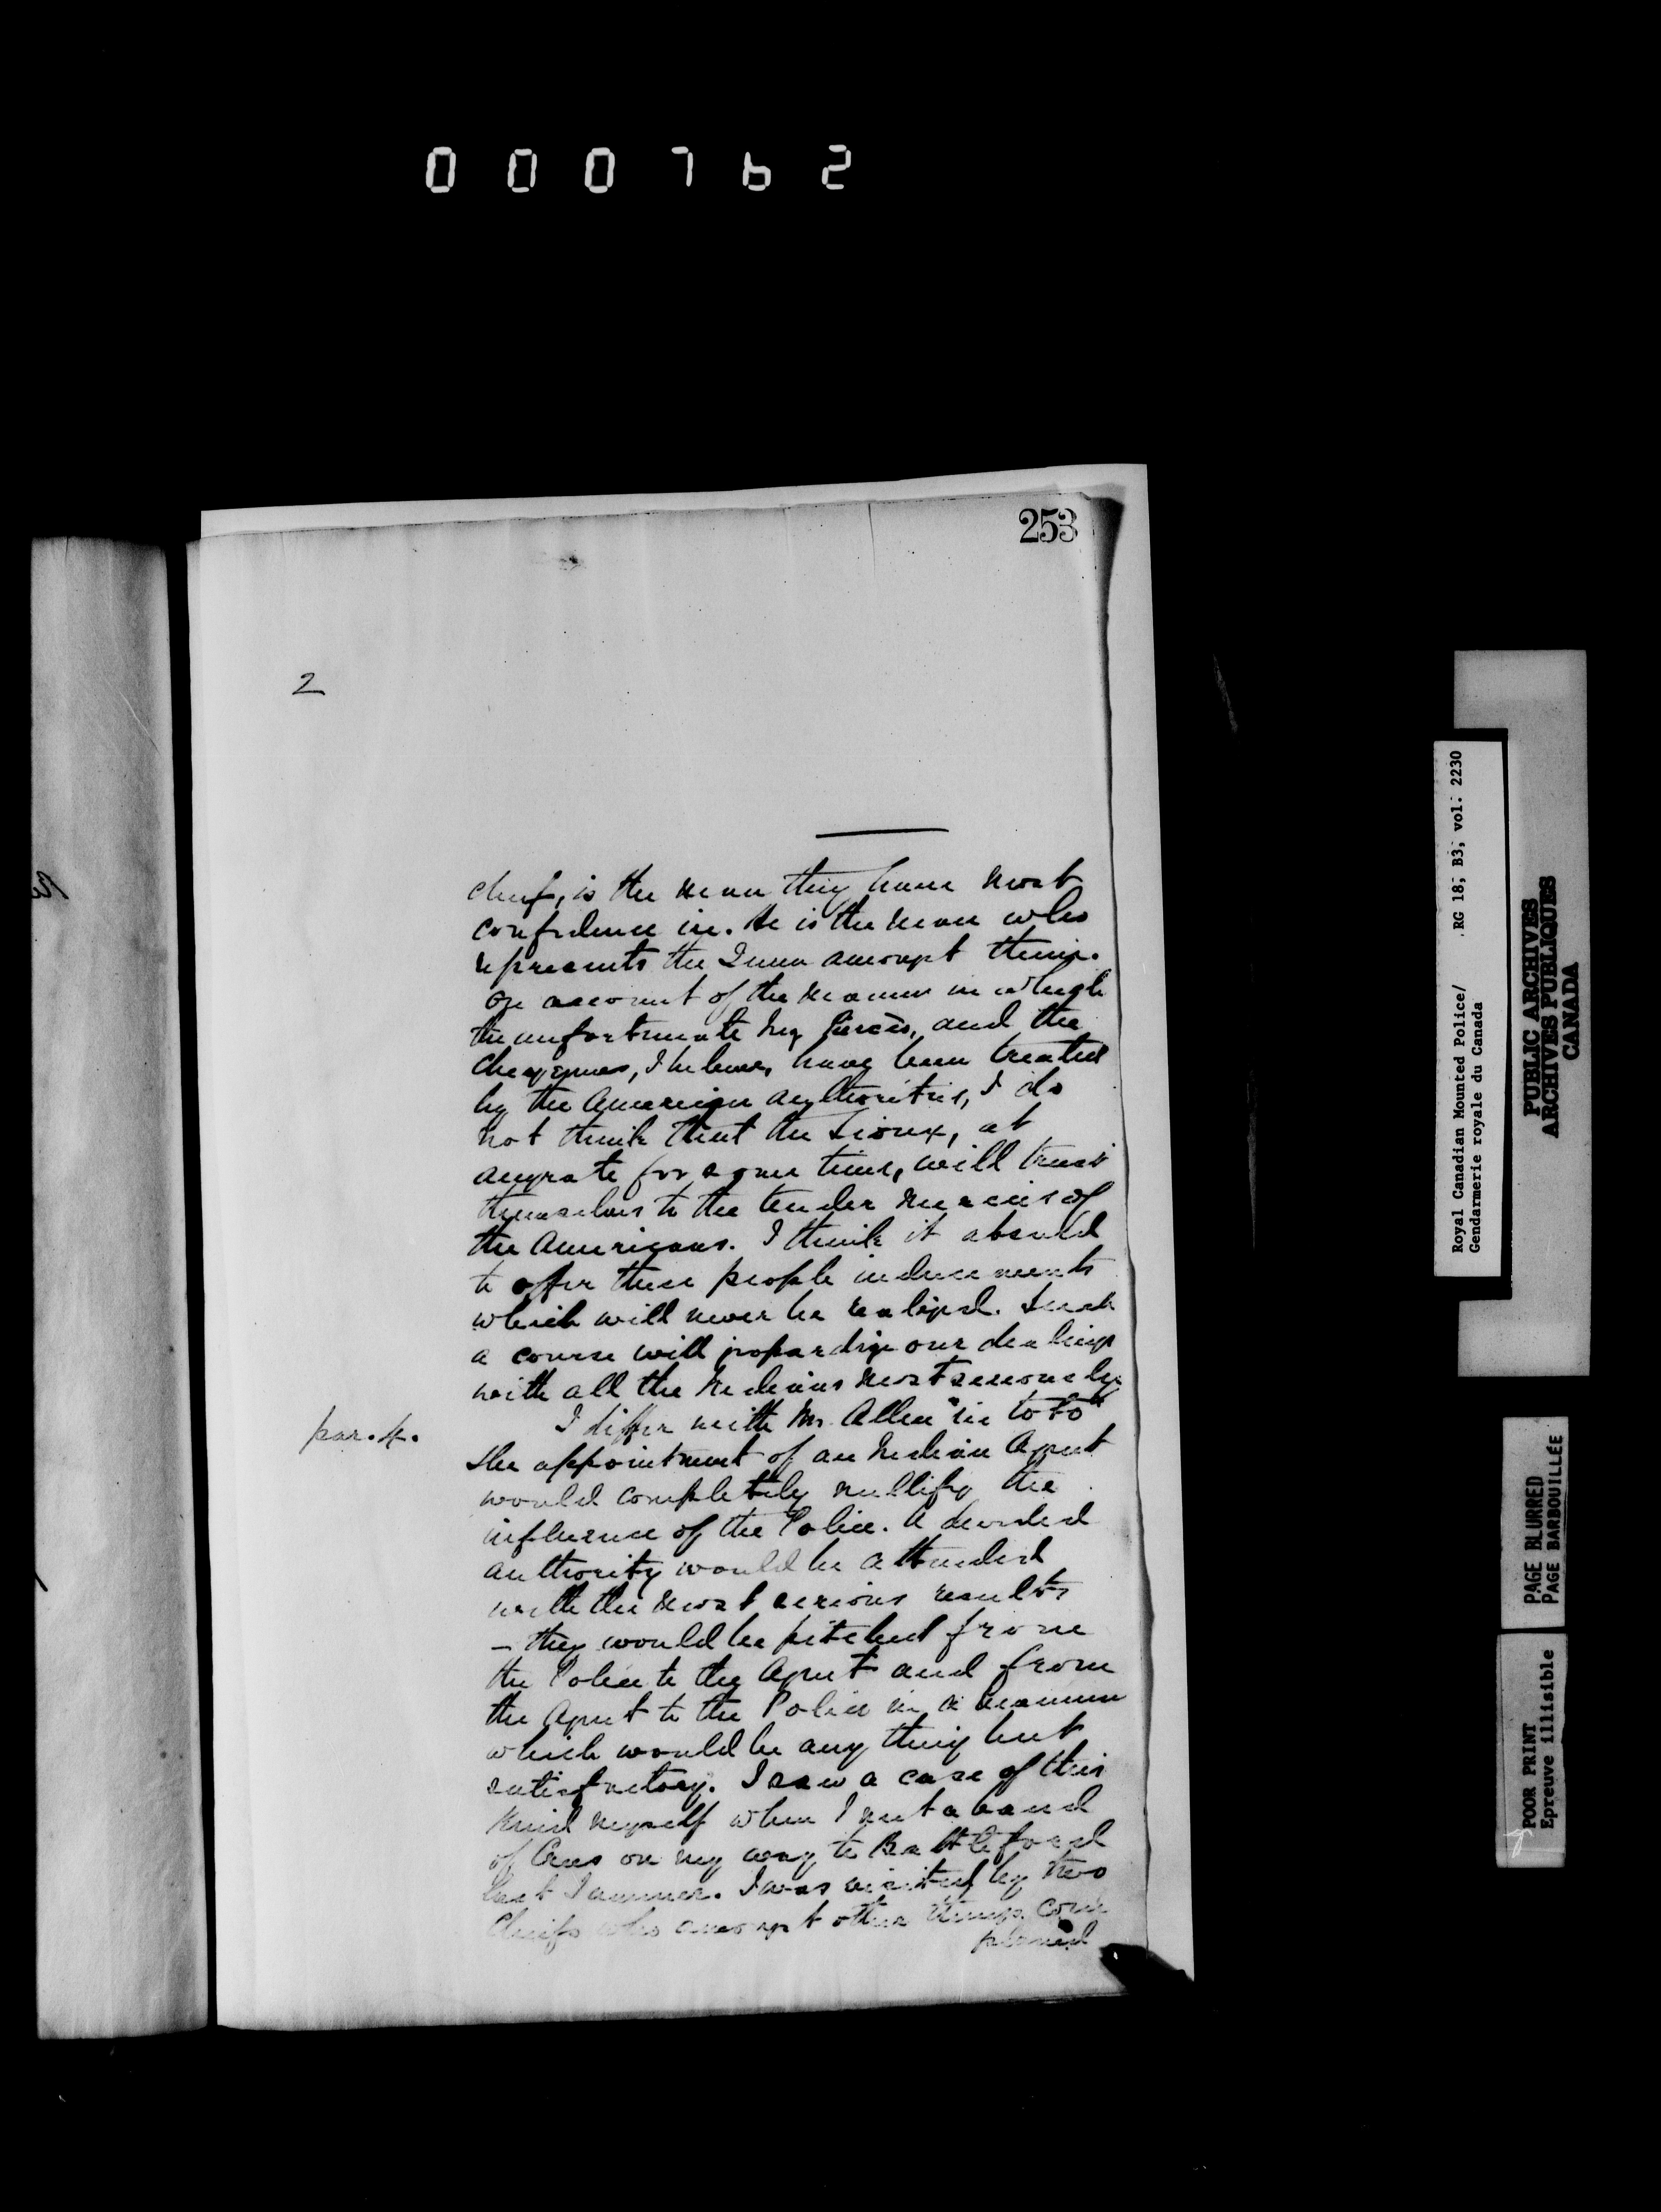 000762
253
2
chief, is the man they have most
confidence in. He is the man who
represents the Queen amongst them.
On account of the manner in which
the unfortunate Nez Percés, and the
Cheyennes, I believe, have been treated
by the American authorities, I do
not think that the Sioux, at
anyrate for some time, will trust
themselves to the tender mercies of
the Americans. I think it absurd
to offer these people inducements
which will never be realized. Such
a course will jeopardize our dealings
with all the Indians most seriously.
par. 4.
I differ with Mr. Allen "in toto"
The appointment of an Indian Agent
would completely nullify the
influence of the Police. A divided
authority would be attended
with the most serious results
— they would be pitched from
the Police to the Agent and from
the Agent to the Police in a manner
which would be any thing but
satisfactory. I saw a case of this
kind myself when I met a band
of Crees on my way to Battleford
last Summer. I was visited by two
Chiefs who amongst other things com
plained
Royal Canadian Mounted Police/ RG 18, B3, vol. 2230
Gendarmerie royale du Canada
PUBLIC ARCHIVES
ARCHIVES PUBLIQUES
CANADA
PAGE BLURRED
PAGE BARBOUILLÉE
POOR PRINT
Epreuve illisible